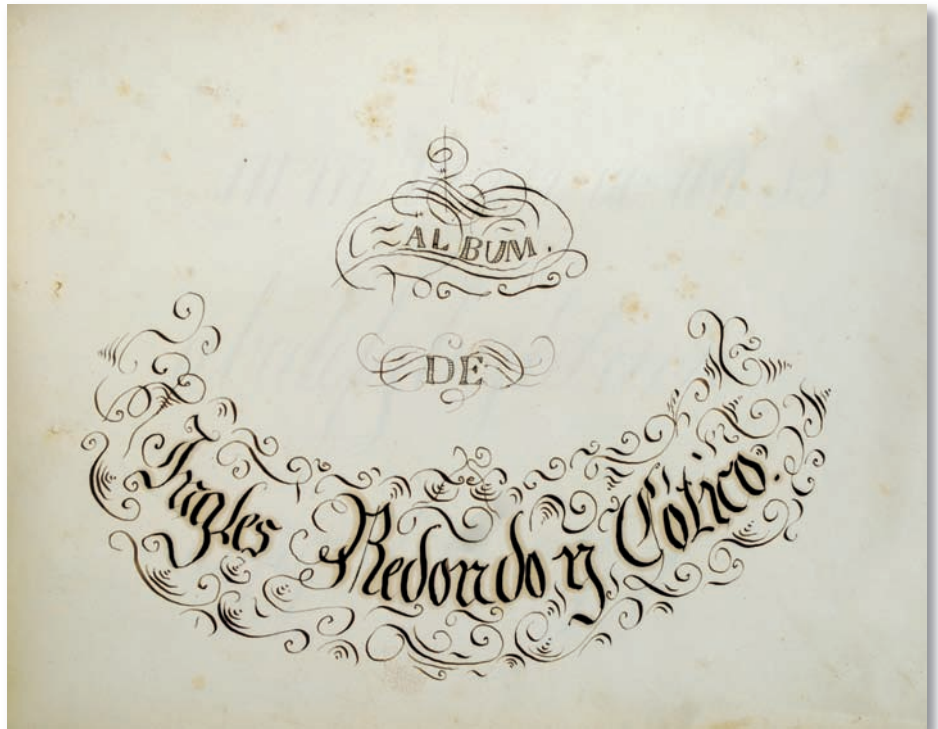 ALBUM.
DE
Ingles Redondo y Gótico.